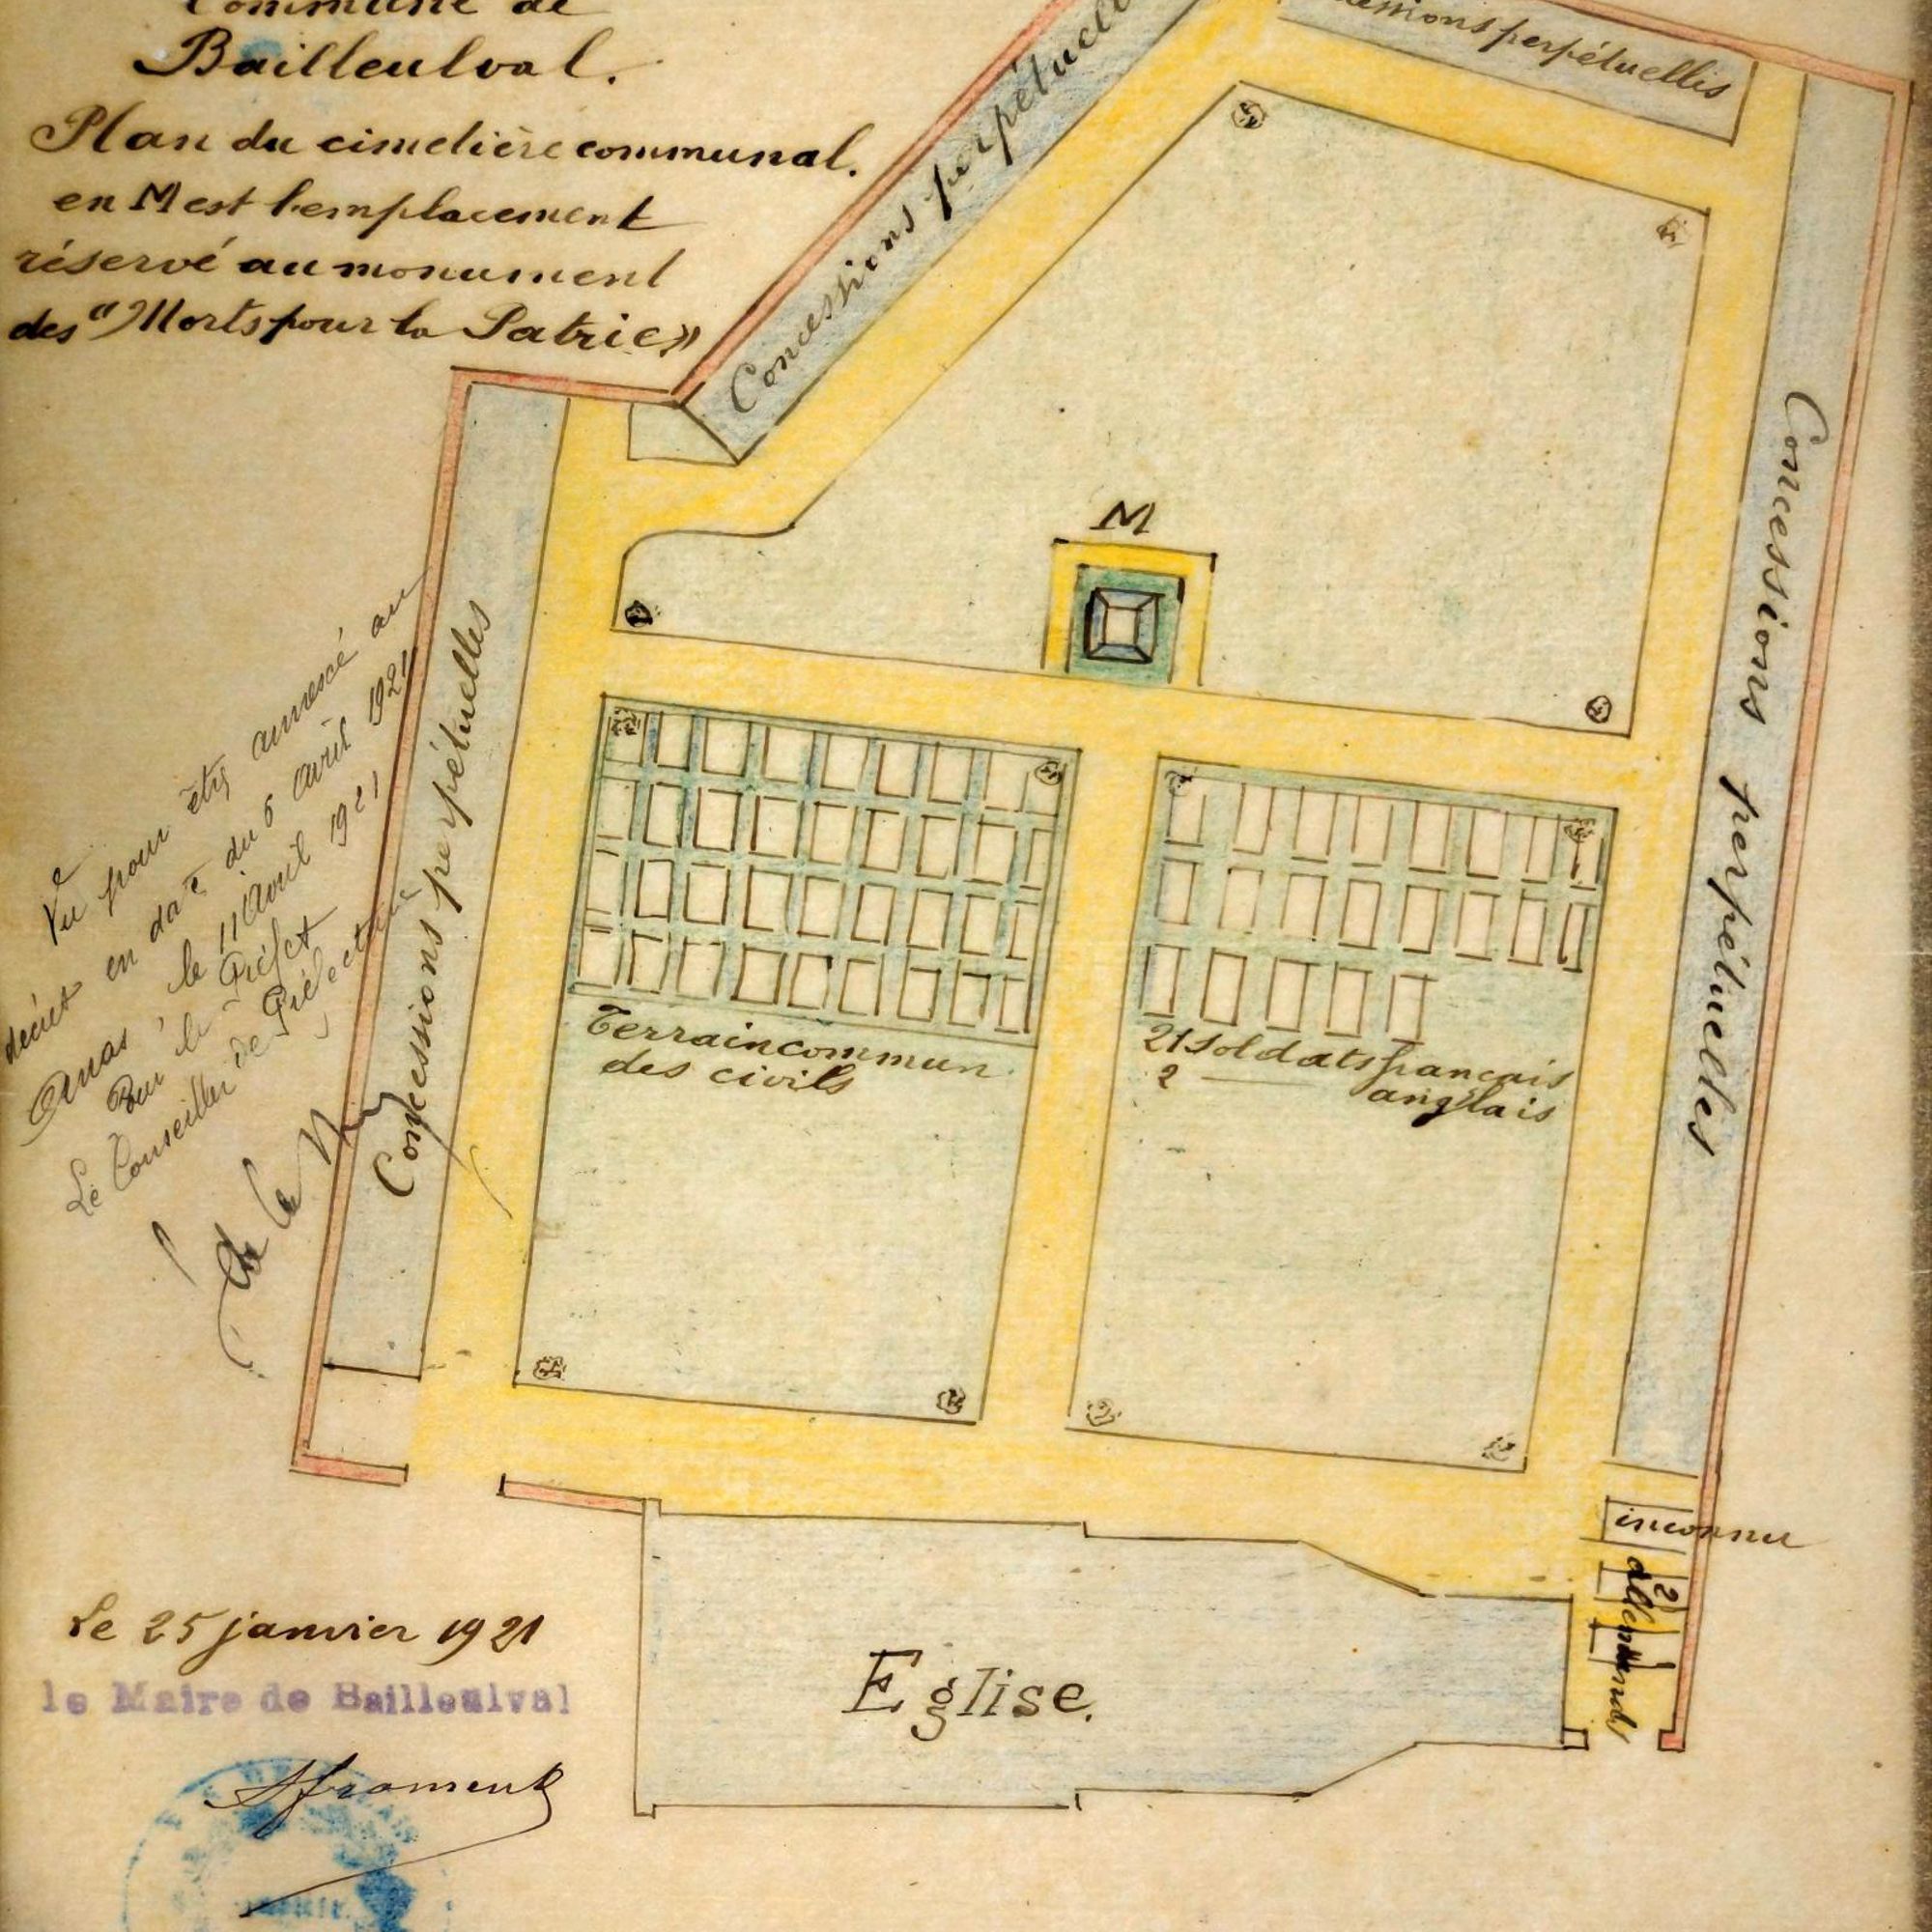 Commune de
Bailleulval.
Plan du cimetière communal.
en M est l'emplacement
réservé au monument
des "Morts pour la Patrie"
Concessions perpétuelles
perpétuelles
Concessions perpétuelles
Concessions perpétuelles
M
Terrain commun
des civils
21 soldats français
2 — anglais
Vu pour être annexé au
décret en date du 6 Avril 1921
Arras, le 11 Avril 1921
Pour le Préfet
Le Conseiller de Préfecture
inconnu
2
allemands
Eglise.
Le 25 janvier 1921
le Maire de Bailleulval
Froment